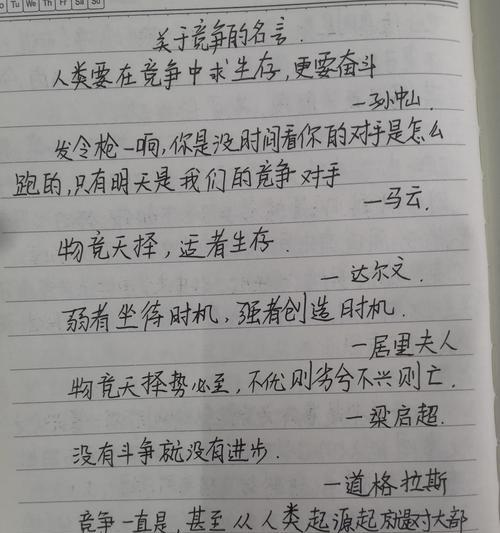 Tu We Th Fr Sa Su
关于竞争的名言.
人类要在竞争中求生存,更要奋斗
—孙中山.
发令枪一响,你是没时间看你的对手是怎么
跑的,只有明天是我们的竞争对手
—马云.
物竞天择,适者生存.
—达尔文.
弱者坐待时机,强者创造时机.
—居里夫人
物竞天择势必至,不优则劣兮不兴则亡.
—梁启超.
没有斗争就没有进步.
—道格拉斯
竞争一直是,甚至从人类起源起就是对大部